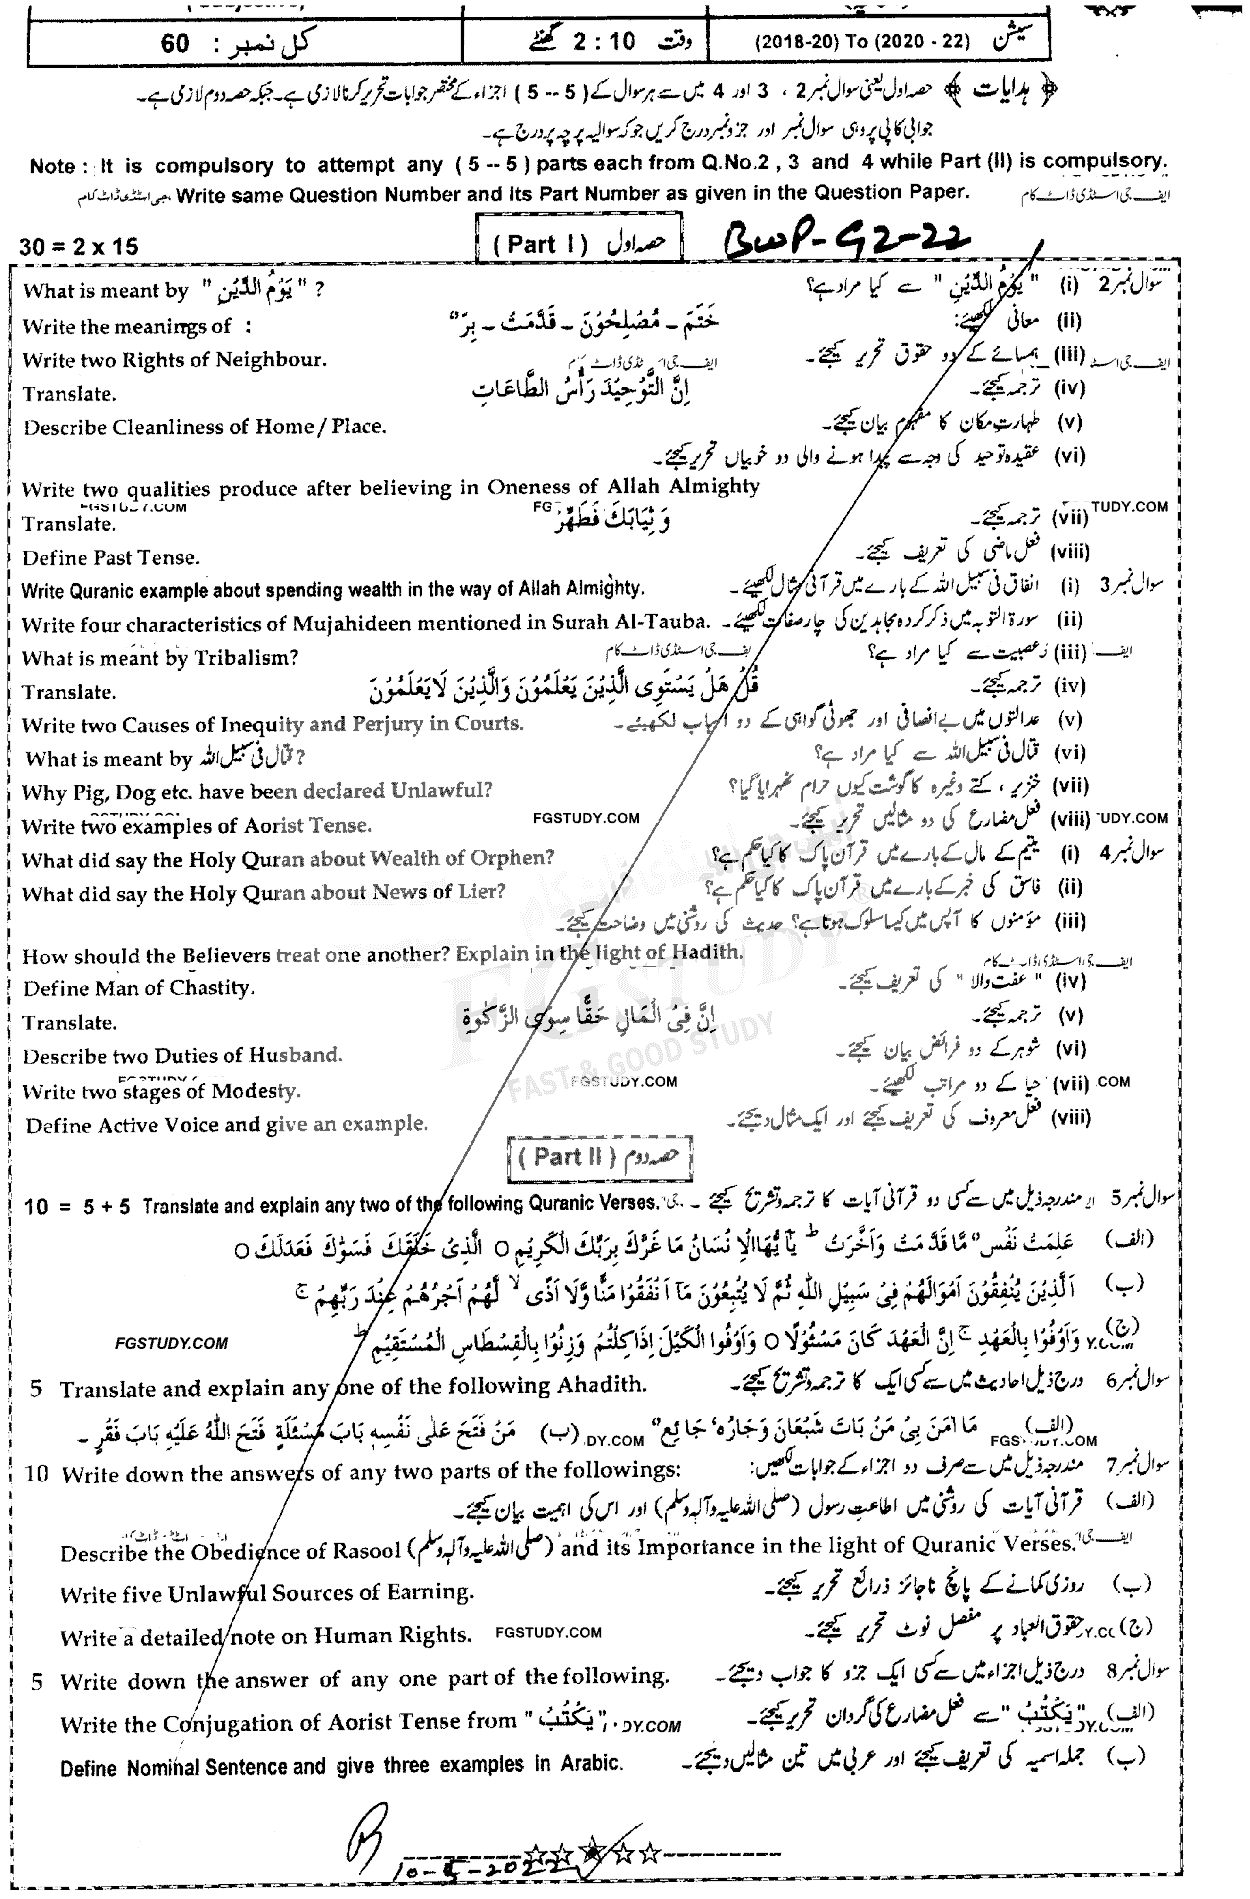 سیشن (2018-20) To (2020 - 22) وقت 2 : 10 گھنٹے کل نمبر : 60
﴿ ہدایات ﴾ حصہ اول یعنی سوال نمبر 2 ، 3 اور 4 میں سے ہر سوال کے ( 5 -- 5 ) اجزاء کے مختصر جوابات تحریر کرنا لازمی ہے۔ جبکہ حصہ دوم لازمی ہے۔
جوابی کاپی پر وہی سوال نمبر اور جزو نمبر درج کریں جو کہ سوالیہ پرچہ پر درج ہے۔
Note : It is compulsory to attempt any ( 5 -- 5 ) parts each from Q.No.2 , 3 and 4 while Part (II) is compulsory.
Write same Question Number and its Part Number as given in the Question Paper. ایف جی اسٹڈی ڈاٹ کام
30 = 2 x 15 ( Part I ) حصہ اول BWP-G2-22
What is meant by " يَوْمُ الدِّيْنِ " ? سوال نمبر 2 (i) " يَوْمُ الدِّيْنِ " سے کیا مراد ہے؟
Write the meanings of : خَتَمَ - مُصْلِحُوْنَ - قَدَّمَتْ - بِرٌّ (ii) معانی لکھئے:
Write two Rights of Neighbour. (iii) ہمسائے کے دو حقوق تحریر کیجئے۔
Translate. اِنَّ التَّوْحِيْدَ رَأْسُ الطَّاعَاتِ (iv) ترجمہ کیجئے۔
Describe Cleanliness of Home / Place. (v) طہارت مکان کا مفہوم بیان کیجئے۔
(vi) عقیدہ توحید کی وجہ سے پیدا ہونے والی دو خوبیاں تحریر کیجئے۔
Write two qualities produce after believing in Oneness of Allah Almighty
Translate. وَ ثِيَابَكَ فَطَهِّرْ (vii) ترجمہ کیجئے۔
Define Past Tense. (viii) فعل ماضی کی تعریف کیجئے۔
Write Quranic example about spending wealth in the way of Allah Almighty. سوال نمبر 3 (i) انفاق فی سبیل اللہ کے بارے میں قرآنی مثال لکھئے۔
Write four characteristics of Mujahideen mentioned in Surah Al-Tauba. (ii) سورۃ التوبہ میں ذکر کردہ مجاہدین کی چار صفات لکھئے۔
What is meant by Tribalism? (iii) عصبیت سے کیا مراد ہے؟
Translate. قُلْ هَلْ يَسْتَوِى الَّذِيْنَ يَعْلَمُوْنَ وَالَّذِيْنَ لَا يَعْلَمُوْنَ (iv) ترجمہ کیجئے۔
Write two Causes of Inequity and Perjury in Courts. (v) عدالتوں میں بے انصافی اور جھوٹی گواہی کے دو اسباب لکھئے۔
What is meant by قتال فی سبیل اللہ? (vi) قتال فی سبیل اللہ سے کیا مراد ہے؟
Why Pig, Dog etc. have been declared Unlawful? (vii) خنزیر ، کتے وغیرہ کا گوشت کیوں حرام ٹھہرایا گیا؟
Write two examples of Aorist Tense. FGSTUDY.COM (viii) فعل مضارع کی دو مثالیں تحریر کیجئے۔
What did say the Holy Quran about Wealth of Orphen? سوال نمبر 4 (i) یتیم کے مال کے بارے میں قرآن پاک کا کیا حکم ہے؟
What did say the Holy Quran about News of Lier? (ii) فاسق کی خبر کے بارے میں قرآن پاک کا کیا حکم ہے؟
(iii) مؤمنوں کا آپس میں کیسا سلوک ہوتا ہے؟ حدیث کی روشنی میں وضاحت کیجئے۔
How should the Believers treat one another? Explain in the light of Hadith.
Define Man of Chastity. (iv) " عفت والا " کی تعریف کیجئے۔
Translate. اِنَّ فِى الْمَالِ حَقًّا سِوَى الزَّكٰوةِ (v) ترجمہ کیجئے۔
Describe two Duties of Husband. (vi) شوہر کے دو فرائض بیان کیجئے۔
Write two stages of Modesty. FGSTUDY.COM (vii) حیا کے دو مراتب لکھئے۔
Define Active Voice and give an example. (viii) فعل معروف کی تعریف کیجئے اور ایک مثال دیجئے۔
FGSTUDY
FAST & GOOD STUDY
( Part II ) حصہ دوم
10 = 5 + 5 Translate and explain any two of the following Quranic Verses. سوال نمبر 5 مندرجہ ذیل میں سے کسی دو قرآنی آیات کا ترجمہ و تشریح کیجئے۔
(الف) عَلِمَتْ نَفْسٌ مَّا قَدَّمَتْ وَاَخَّرَتْ ؕ يٰۤاَيُّهَا الْاِنْسَانُ مَا غَرَّكَ بِرَبِّكَ الْكَرِيْمِ ○ الَّذِىْ خَلَقَكَ فَسَوّٰكَ فَعَدَلَكَ ○
(ب) اَلَّذِيْنَ يُنْفِقُوْنَ اَمْوَالَهُمْ فِىْ سَبِيْلِ اللّٰهِ ثُمَّ لَا يُتْبِعُوْنَ مَاۤ اَنْفَقُوْا مَنًّا وَّلَاۤ اَذًى ۙ لَّهُمْ اَجْرُهُمْ عِنْدَ رَبِّهِمْ ۚ
(ج) وَاَوْفُوْا بِالْعَهْدِ ۚ اِنَّ الْعَهْدَ كَانَ مَسْئُوْلًا ○ وَاَوْفُوا الْكَيْلَ اِذَا كِلْتُمْ وَزِنُوْا بِالْقِسْطَاسِ الْمُسْتَقِيْمِ ؕ FGSTUDY.COM
5 Translate and explain any one of the following Ahadith. سوال نمبر 6 درج ذیل احادیث میں سے کسی ایک کا ترجمہ و تشریح کیجئے۔
(الف) مَا اٰمَنَ بِىْ مَنْ بَاتَ شَبْعَانَ وَجَارُهٗ جَائِعٌ (ب) مَنْ فَتَحَ عَلٰى نَفْسِهٖ بَابَ مَسْئَلَةٍ فَتَحَ اللّٰهُ عَلَيْهِ بَابَ فَقْرٍ -
10 Write down the answers of any two parts of the followings: سوال نمبر 7 مندرجہ ذیل میں سے صرف دو اجزاء کے جوابات لکھیں:
(الف) قرآنی آیات کی روشنی میں اطاعت رسول (صلی اللہ علیہ وآلہ وسلم) اور اس کی اہمیت بیان کیجئے۔
Describe the Obedience of Rasool (صلی اللہ علیہ وآلہ وسلم) and its Importance in the light of Quranic Verses.
Write five Unlawful Sources of Earning. (ب) روزی کمانے کے پانچ ناجائز ذرائع تحریر کیجئے۔
Write a detailed note on Human Rights. FGSTUDY.COM (ج) حقوق العباد پر مفصل نوٹ تحریر کیجئے۔
5 Write down the answer of any one part of the following. سوال نمبر 8 درج ذیل اجزاء میں سے کسی ایک جزو کا جواب دیجئے۔
Write the Conjugation of Aorist Tense from " يَكْتُبُ ". (الف) " يَكْتُبُ " سے فعل مضارع کی گردان تحریر کیجئے۔
Define Nominal Sentence and give three examples in Arabic. (ب) جملہ اسمیہ کی تعریف کیجئے اور عربی میں تین مثالیں دیجئے۔
10-5-2022